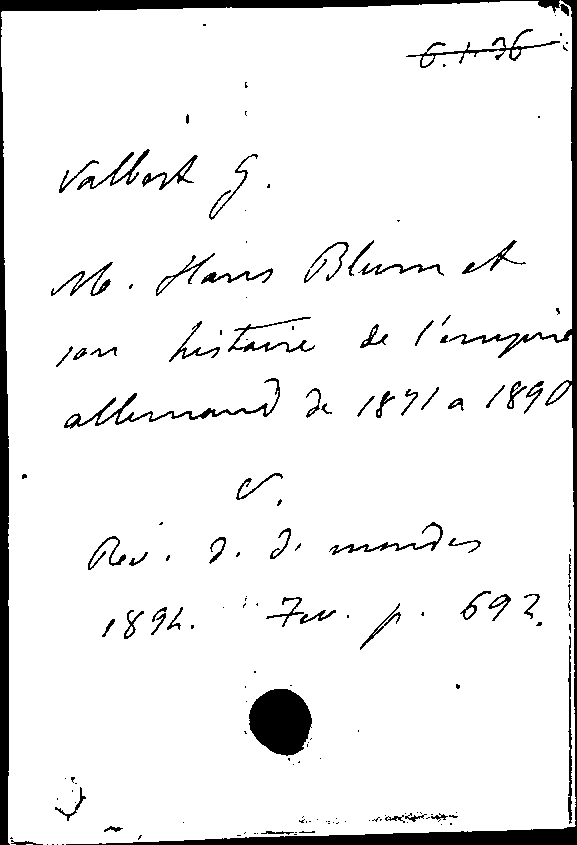 6.1.36
Valbert G.
M. Hans Blum et
son histoire de l'empire
allemand de 1871 a 1890
V.
Rev. d. d. mondes
1894. Fev. p. 692.